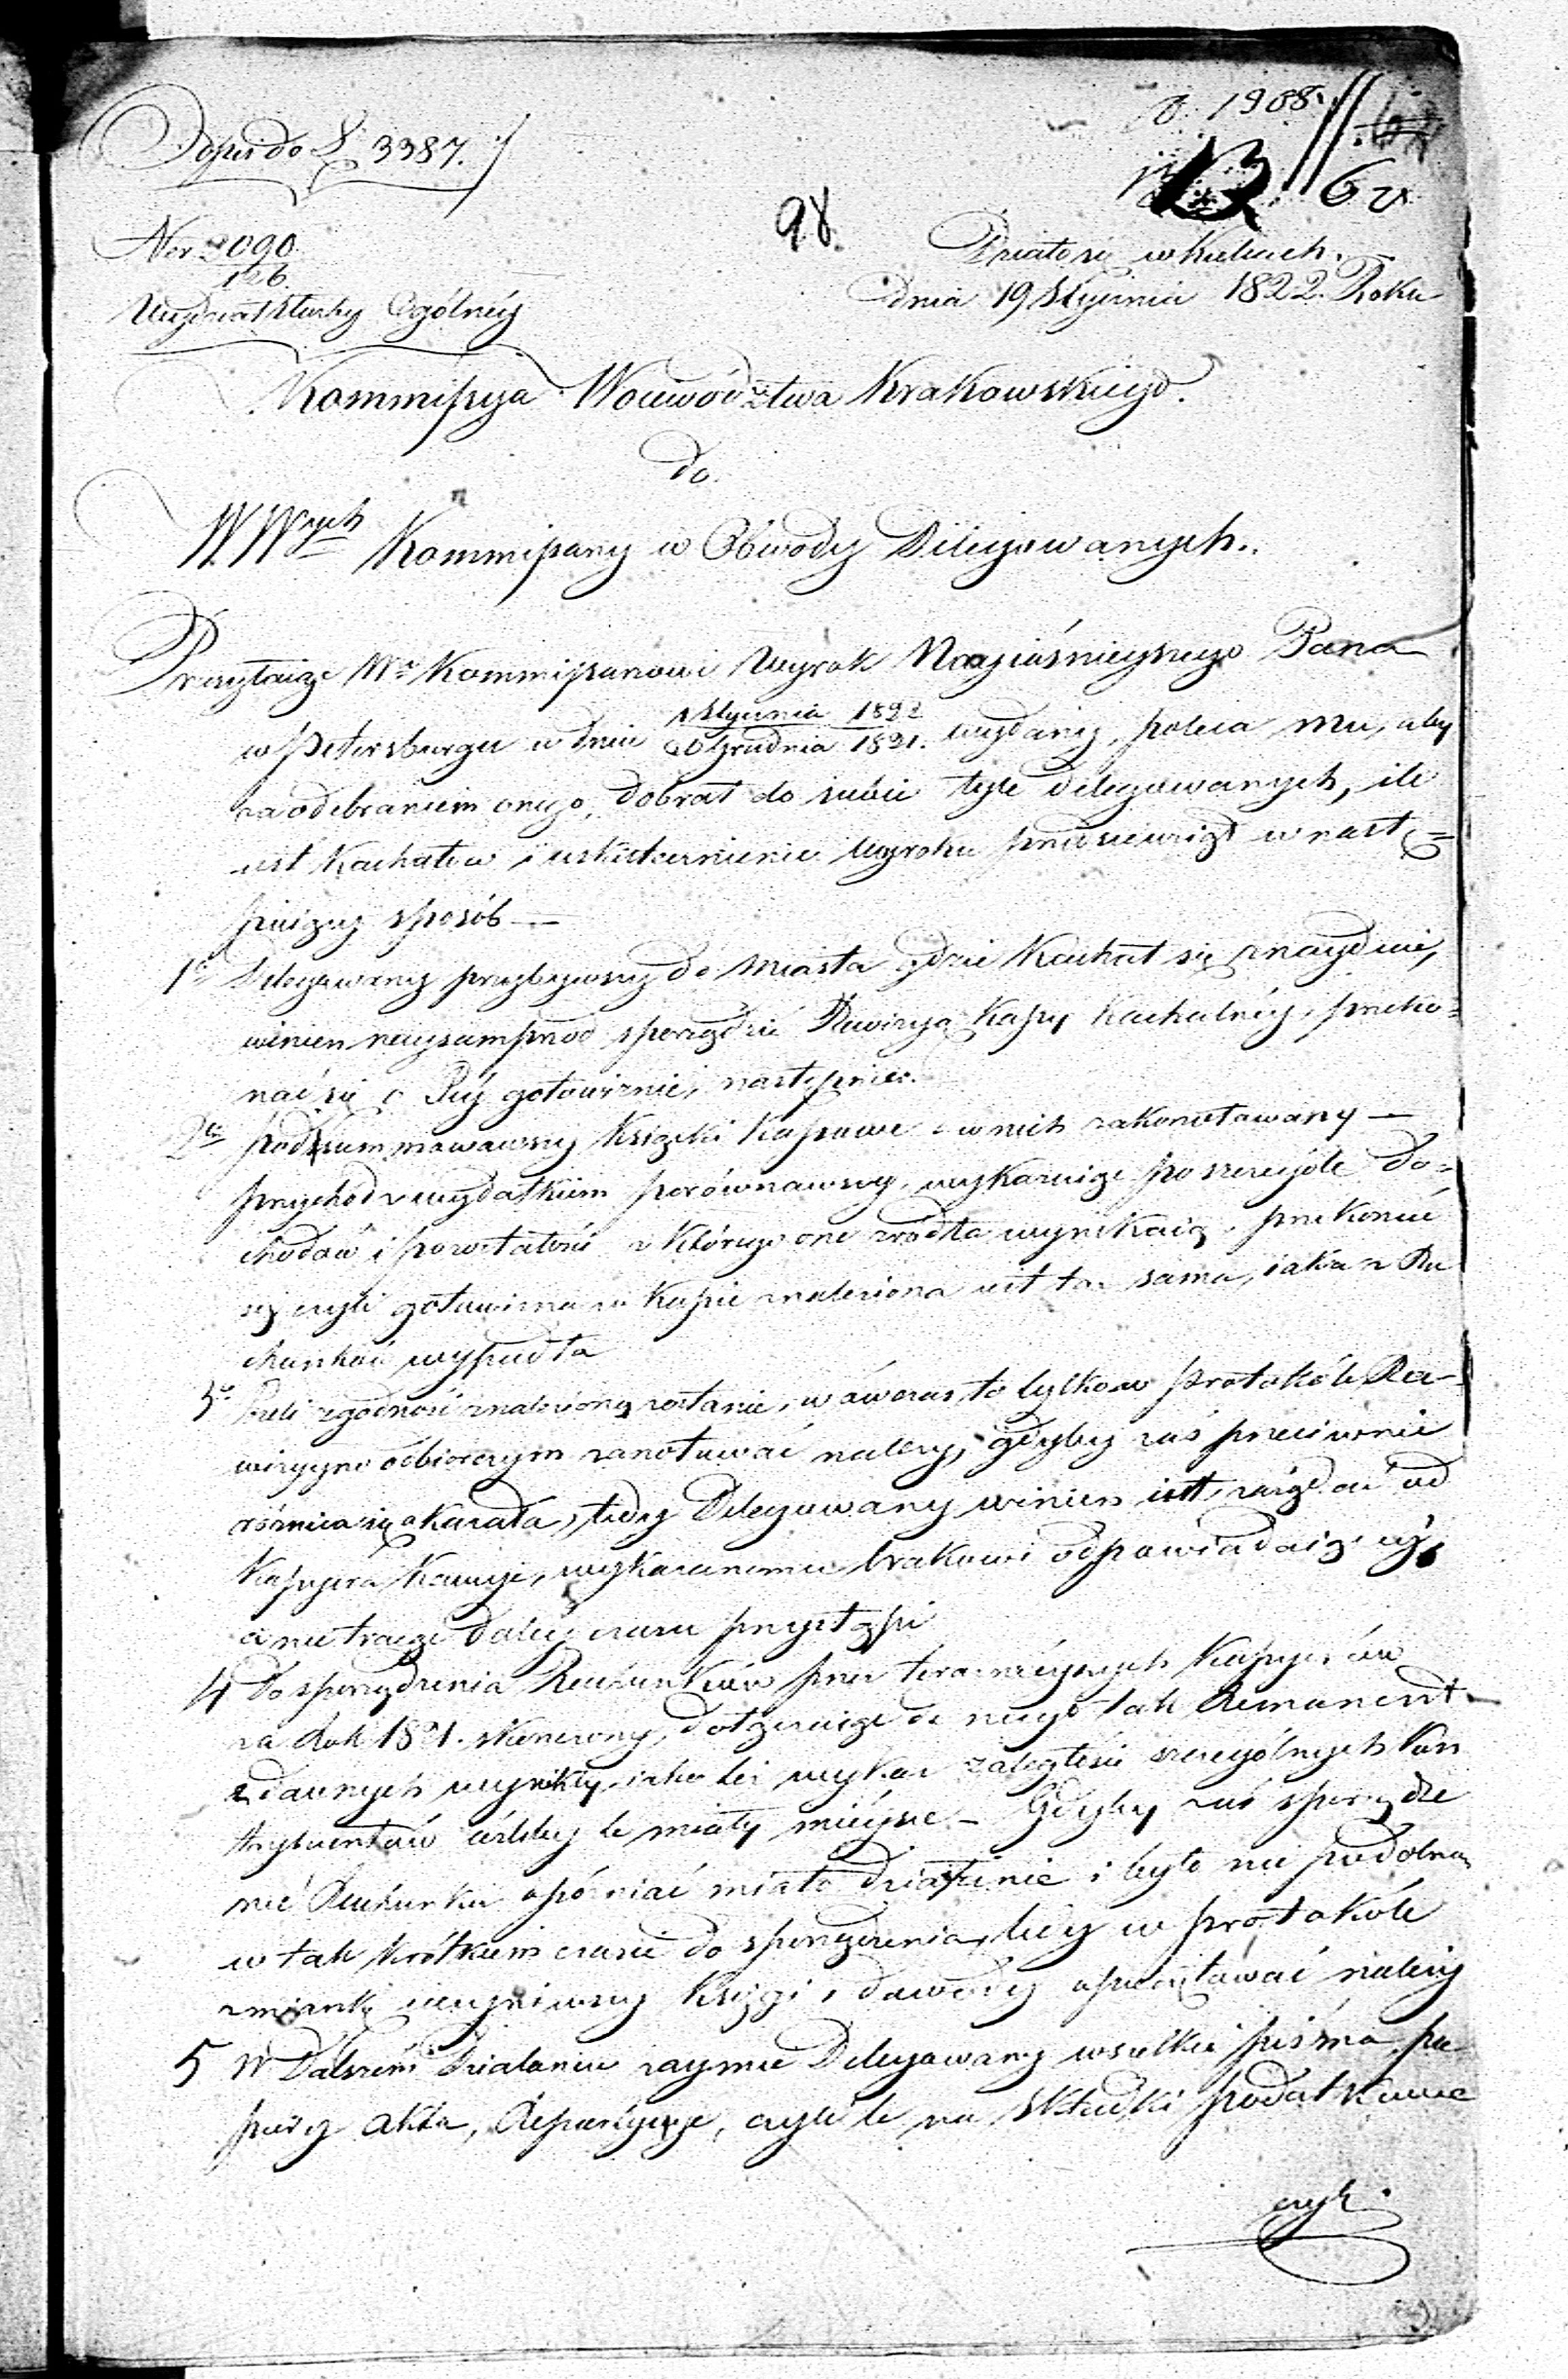 Dopis do L 3387.
98.
Ner 2090.
126.
Wydział Służby Ogólnéy
Działo się w Kielcach.
Dnia 19 Stycznia 1822. Roku
Kommissya Woiewództwa Krakowskiego.
do.
W Wych Kommissarzy w Obwody Delegowanych.
Przesyłaiąc Wu Kommissarzowi Wyrok Nayiaśnieyszego Pana
w Petersburgu w dniu 1 Stycznia 1822 / 20 Grudnia 1821. wydany, poleca mu, aby
za odebraniem onego, dobrał do siebie tyle delegowanych, ile
iest Kachałów i uskutecznienie Wyroku przedsięwziął w nastę=
puiący sposób —
1o Delegowany przybywszy do Miasta gdzie Kachał się znayduie,
winien naysamprzod sporządzić Rewizyą Kassy Kachalnéy, przeko=
nać się o Jéy gotowiznie, następnie.
2o podsummowawszy Książki Kassowe i w nich zakonotowany —
przychód z wydatkiem porównawszy, wykazuiąc po szczególe do=
chodów i pozostałości z którego one zródła wynikaią, przekonać
się czyli gotowizna w Kassie znaleziona iest ta sama, iaka z Ra
chunków wypadła
3o Jeżeli zgodność znalezioną zostanie, w ówczas to tylko w Protokóle Re-
wizyyno odbiorczym zanotować należy, gdyby zaś przeciwnie
różnica się okazała, tedy Delegowany winien iest, zażądać od
Kassyera Kaucyi, wykazanemu brakowi odpowiadaiącéy,
a nie tracąc daléy czasu przystąpi
4 Do sporządzenia Rachunków przez teraznieyszych Kassyerów
za Rok 1821. skończony, dołączaiąc do niego tak Remanent
z dawnych wynikły, iako też wykaz zaległości szczególnych Kon
trybuentów ieżeliby te miały mieysce — Gdyby zaś sporządze
nie Rachunku opóźniać miało działanie i było nie podobna
w tak krótkiem czasie do sporządzenia, tedy w protokóle
zmiankę uczyniwszy Księgi i dowody opieczętować należy
5 W dalszém działaniu zaymie Delegowany wszelkie pisma, pa
piery Akta, Repartycye, czyli te na Składki podatkowe
czyli